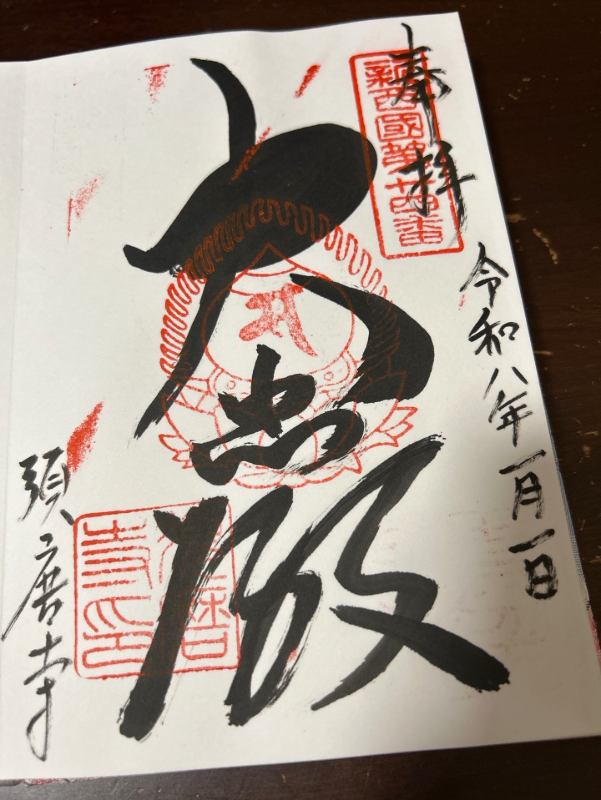 奉拝
新西國第廿四番
令和八年一月一日
大悲殿
須磨寺
須磨寺印